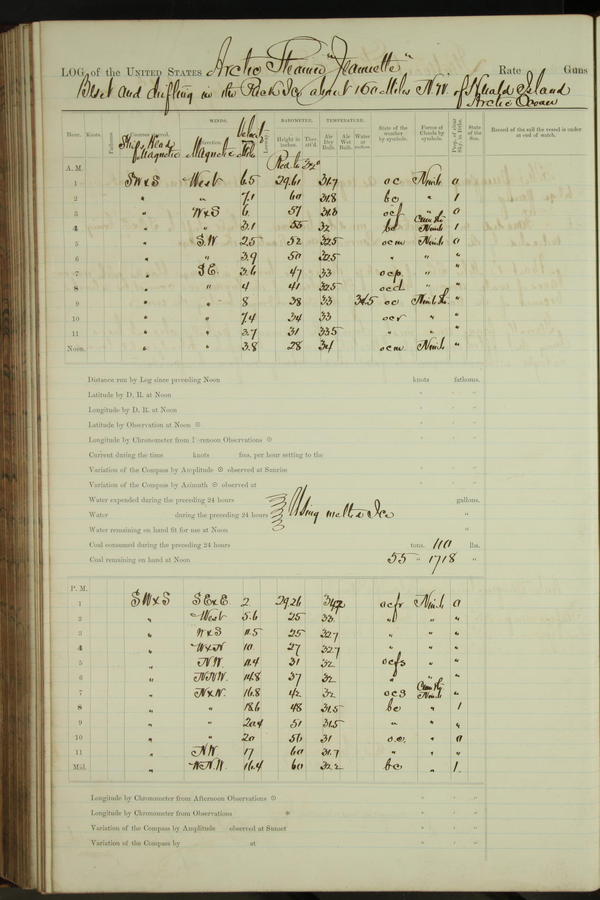 LOG of the UNITED STATES Arctic Steamer "Jeannette" Rate Guns
Beset and drifting in the Pack Ice about 160 Miles N.W. of Herald Island
Arctic Ocean
WINDS. BAROMETER. TEMPERATURE.
Hour. Knots. Fathoms. Courses steered. Direction. Velocity Height in inches. Ther. att'd. Air Dry Bulb. Air Wet Bulb. Water at surface. State of the weather by symbols. Forms of Clouds by symbols. State of the Sea. Record of the sail the vessel is under at end of watch.
Ship's Head Magnetic Magnetic Red. to 32°
A. M.
1 SW x S West 6.5 29.61 31.7 oc Nimb 0
2 " " 7.1 60 31.8 bc " 1
3 " W x S 6. 57 31.8 ocf " 0
4 " " 3.1 55 32 bc Cum Str Nimb 1
5 " S.W. 2.5 52 32.5 ocm Nimb 0
6 " " 3.9 50 32.5 " " "
7 " S.E. 3.6 47 33 ocp " "
8 " " 4 41 32.5 ocd " "
9 " " 8 38 33 34.5 oc Nimb Str "
10 " " 7.4 34 33 ocr " "
11 " " 3.7 31 33.5 " " "
Noon. " " 3.8 28 34 ocm Nimb "
Distance run by Log since preceding Noon knots fathoms.
Latitude by D. R. at Noon ° ' "
Longitude by D. R. at Noon ° ' "
Latitude by Observation at Noon ☉ ° ' "
Longitude by Chronometer from Forenoon Observations ☉ ° ' "
Current during the time knots fms. per hour setting to the
Variation of the Compass by Amplitude ☉ observed at Sunrise ° ' "
Variation of the Compass by Azimuth ☉ observed at ° ' "
Water expended during the preceding 24 hours gallons.
Water during the preceding 24 hours Using melted Ice "
Water remaining on hand fit for use at Noon "
Coal consumed during the preceding 24 hours tons. 110 lbs.
Coal remaining on hand at Noon 55 " 1718 "
P. M.
1 SW x S SE x E 2 29.26 34.2 ocfr Nimb 0
2 " West 5.6 25 33. " " "
3 " W x S 11.5 25 32.7 " " "
4 " W x N 10 27 32.7 " " "
5 " N.W. 11.4 31 32 ocfs " "
6 " N.N.W. 14.8 37 32 " " "
7 " N x W. 16.8 42 32 ocs Cum Str Nimb "
8 " " 18.6 48 31.5 bc " 1
9 " " 20.4 51 31.5 " " "
10 " " 20 56 31 o.c. " 0
11 " N.W. 17 60 31.7 " " "
Mid. " W.N.W. 16.4 60 32.2 bc " 1
Longitude by Chronometer from Afternoon Observations ☉ ° ' "
Longitude by Chronometer from Observations * ° ' "
Variation of the Compass by Amplitude observed at Sunset ° ' "
Variation of the Compass by at ° ' "